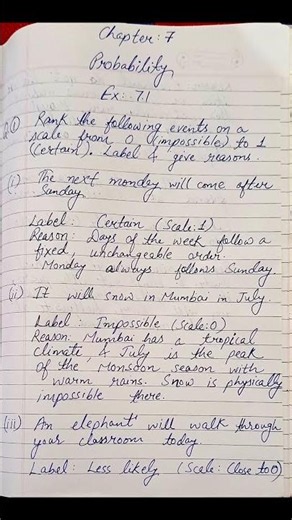 Chapter: 7
Probability
Ex: 7.1
Q① Rank the following events on a
scale from 0 (impossible) to 1
(Certain). Label & geve reasons.
(i) The next monday will come after
Sunday.
Label: Certain (Scale:1)
Reason: Days of the week follow a
fixed, unchangeable order.
Monday always follows Sunday
(ii) It will snow in Mumbai in July.
Label: Impossible (Scale:0)
Reason: Mumbai has a tropical
climate, & July is the peak
of the Monsoon season with
warm rains. Snow is physically
impossible there.
(iii) An elephant will walk through
your classroom today.
Label: Less likely (Scale: Close to 0)